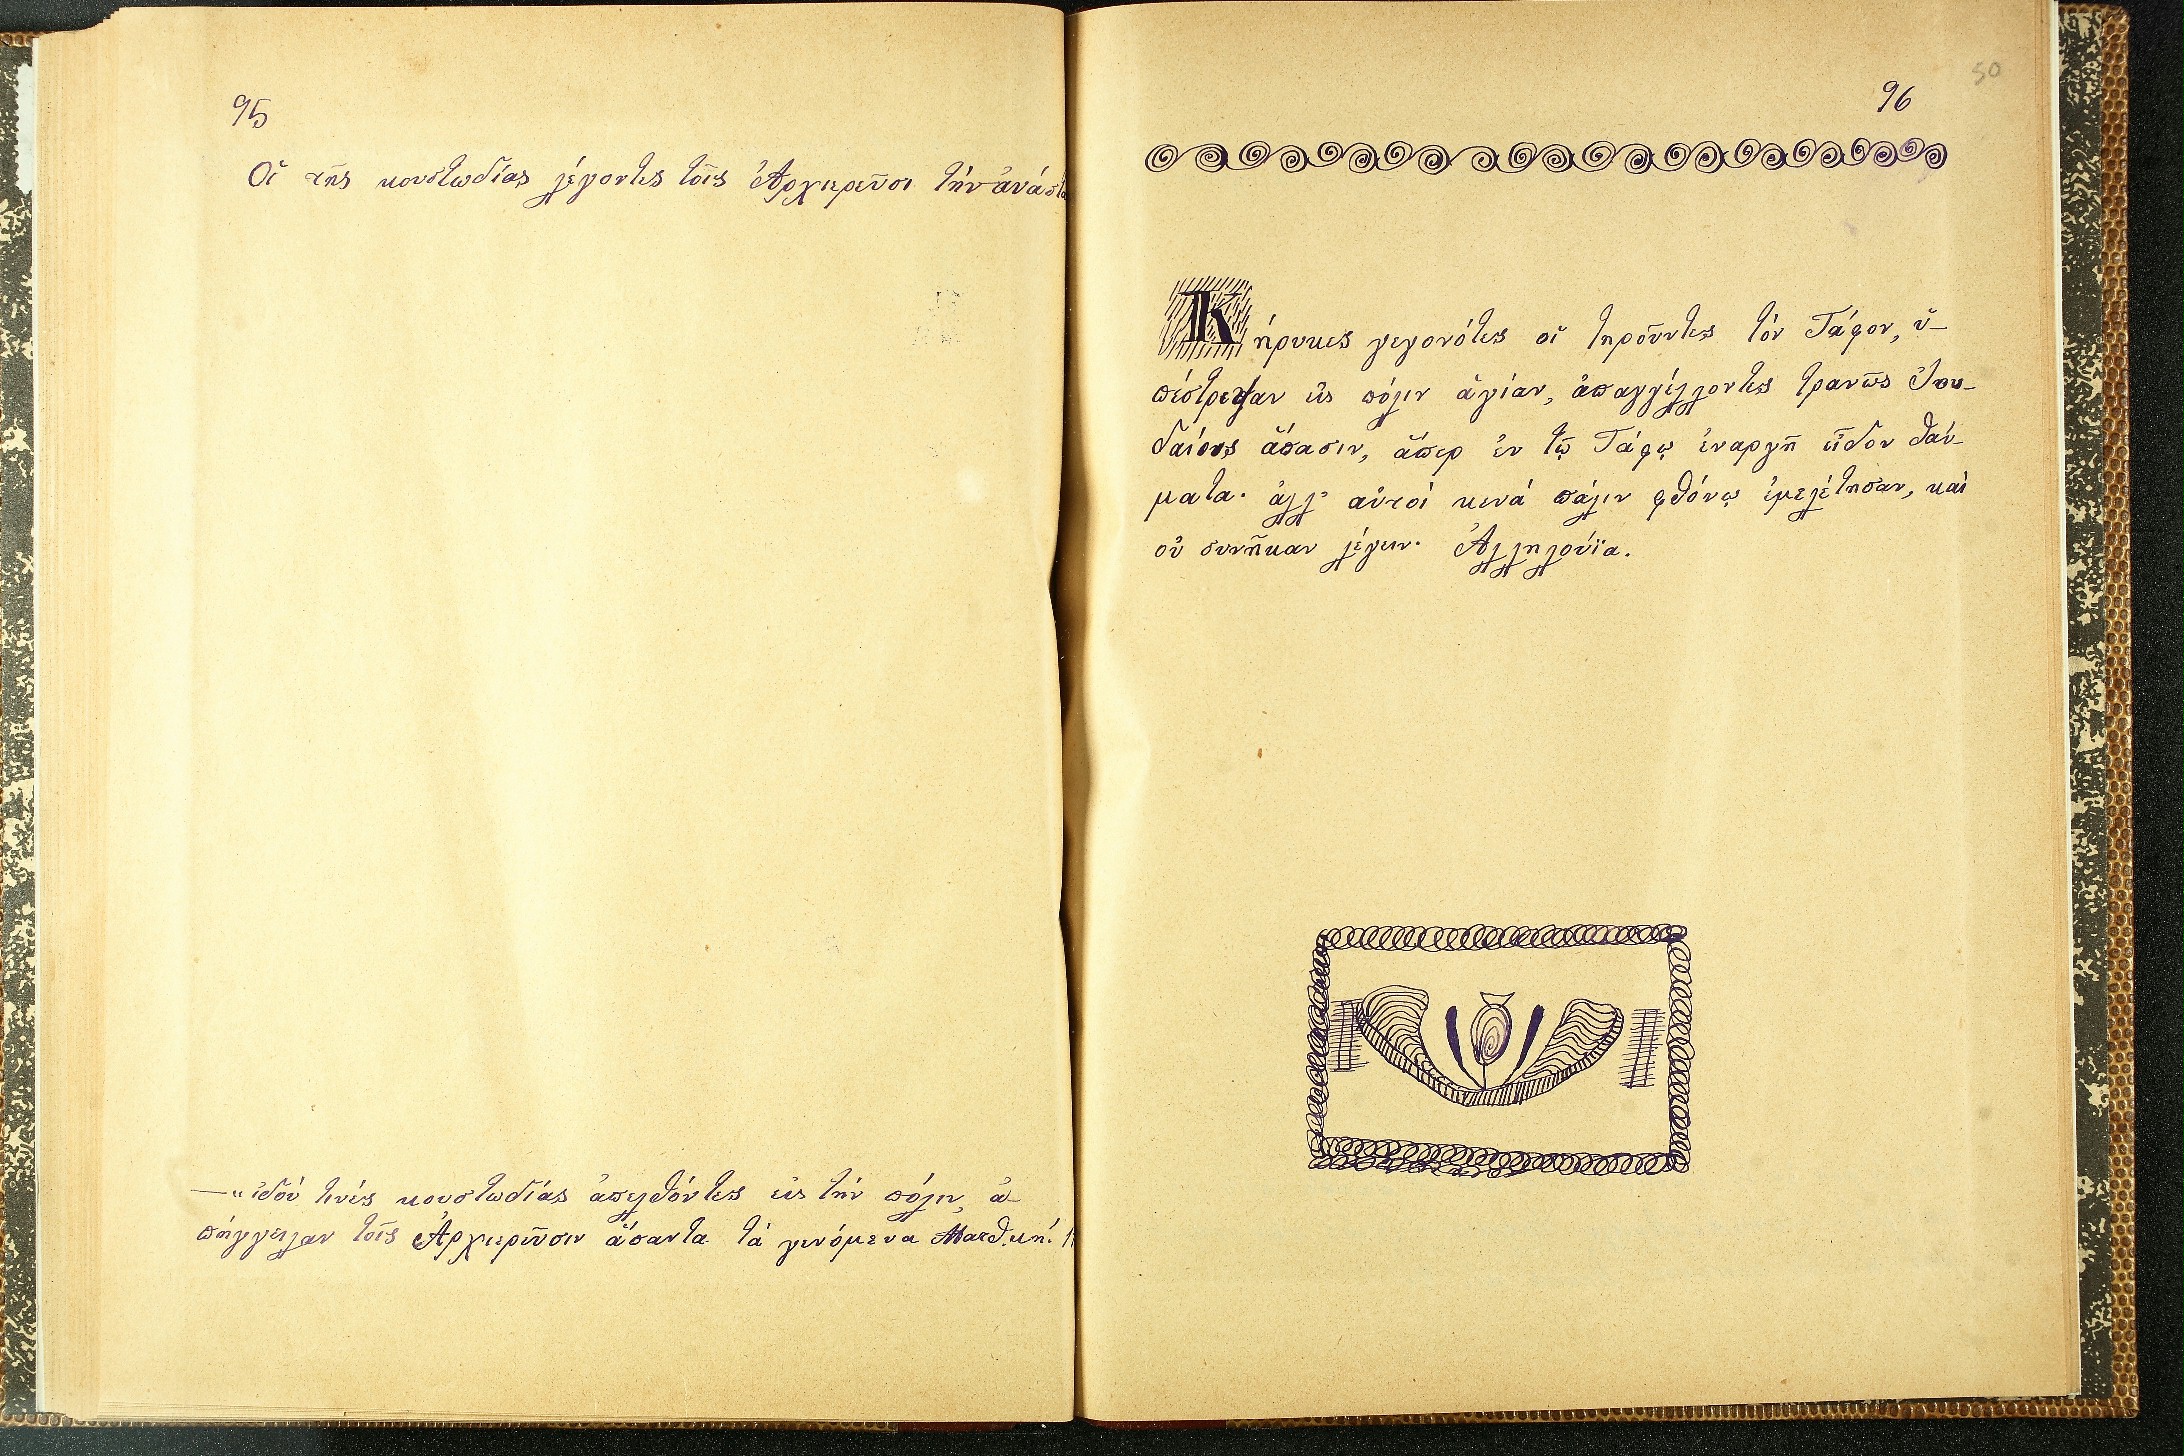 95
Οἱ τῆς κουστωδίας λέγοντες τοῖς Ἀρχιερεῦσι τήν ἀνάστα
—"ἰδού τινές κουστωδίας ἀπελθόντες εἰς τήν πόλιν, ἀ-
πήγγειλαν τοῖς Ἀρχιερεῦσιν ἅπαντα τά γενόμενα Ματθ. κή.
50
96
Κήρυκες γεγονότες οἱ τηροῦντες τόν Τάφον, ὑ-
πέστρεψαν εἰς πόλιν ἁγίαν, ἀπαγγέλλοντες τρανῶς Ἰου-
δαίοις ἅπασιν, ἅπερ ἐν τῷ Τάφῳ ἐναργῆ εἶδον θαύ-
ματα· ἀλλ' αὐτοί κενά πάλιν φθόνῳ ἐμελέτησαν, καί
οὐ συνῆκαν λέγειν· Ἀλληλούϊα.